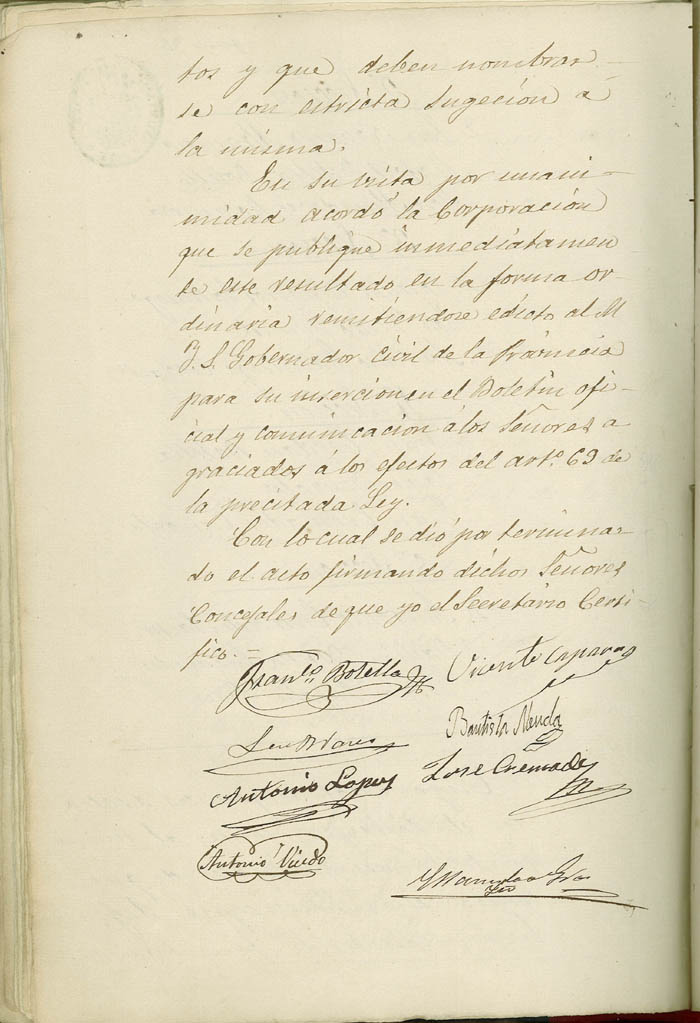 tos y que deben nombrar
se con estricta sugecion á
la misma.
En su vista por unani-
midad acordó la Corporacion
que se publique inmediatamen
te este resultado en la forma or
dinaria remitiendose edicto al M
Y. S. Gobernador civil de la Provincia
para su insercion en el Boletin ofi-
cial y comunicacion á los Señores a
graciados á los efectos del artº. 69 de
la precitada Ley.
Con lo cual se dió por termina-
do el acto firmando dichos Señores
Concejales de que yo el Secretario Certi-
fico.=
Franco. Botella
Vicente
Bautista
Antonio Lopez
Jose Cremades
Antonio